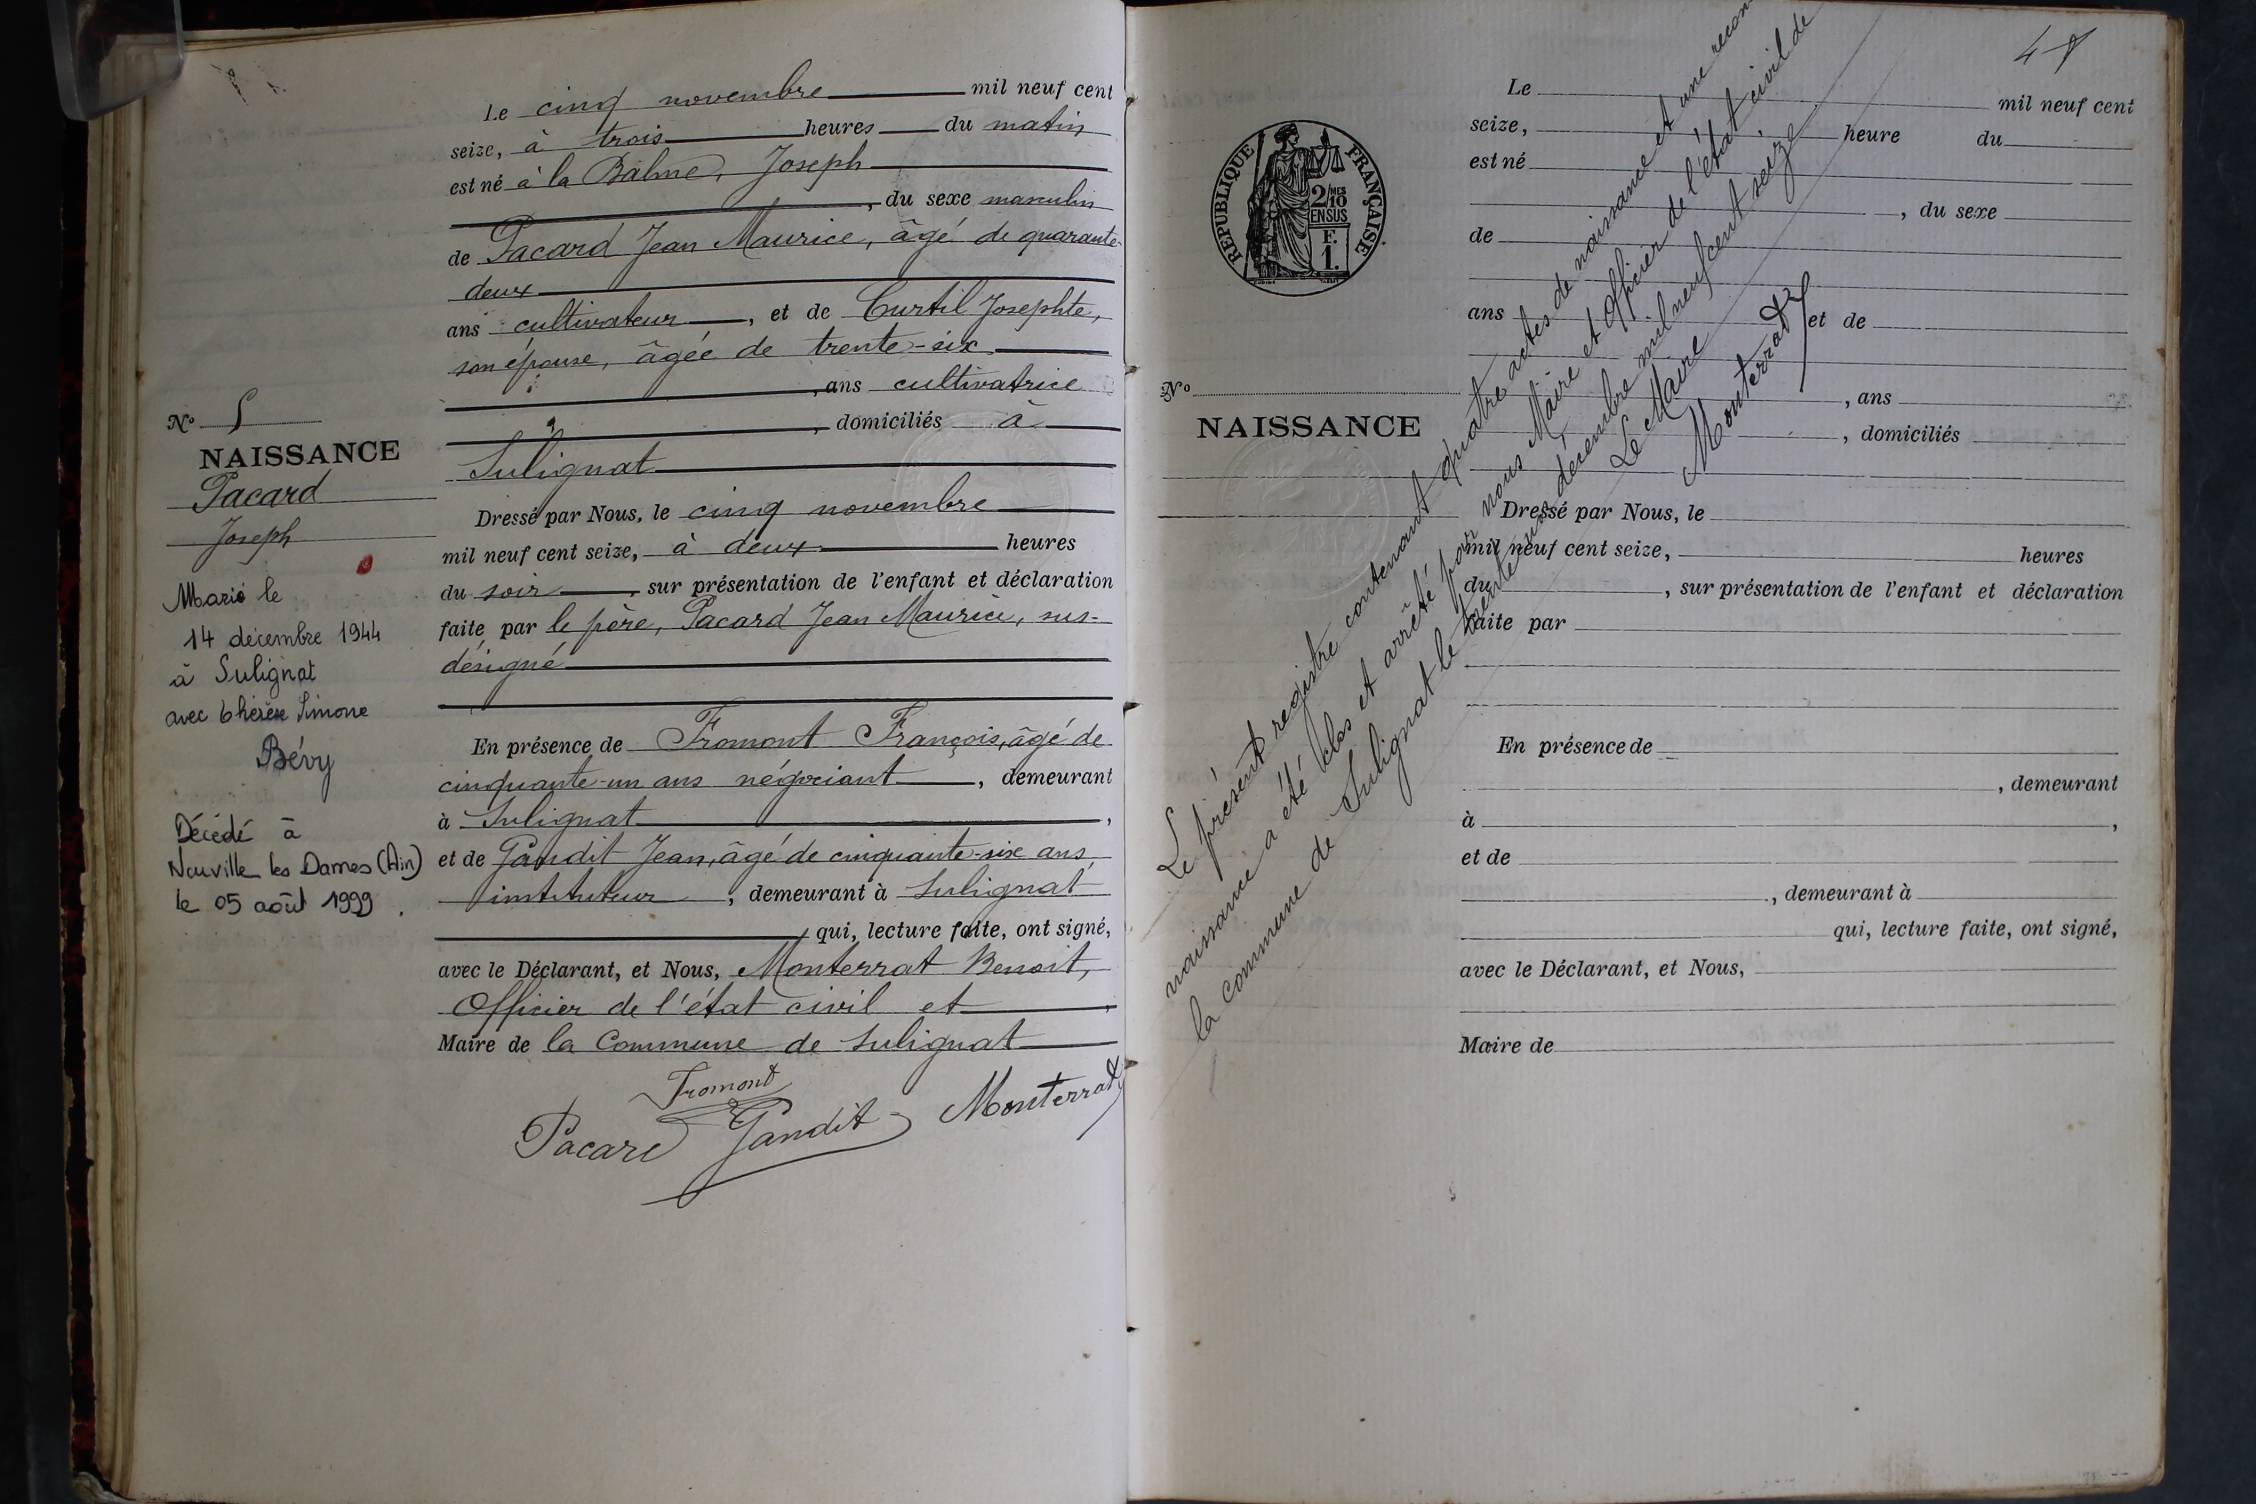 Le cinq novembre mil neuf cent
seize, à trois heures du matin
est né à la Balme, Joseph
, du sexe masculin
de Pacard Jean Maurice, âgé de quarante-
deux
ans cultivateur, et de Curtil Josephte,
son épouse, âgée de trente-six
, ans cultivatrice
, domiciliés à
Sulignat
Dressé par Nous, le cinq novembre
mil neuf cent seize, à deux heures
du soir, sur présentation de l'enfant et déclaration
faite par le père, Pacard Jean Maurice, sus-
désigné
En présence de Fromont François, âgé de
cinquante-un ans négociant, demeurant
à Sulignat,
et de Gandit Jean, âgé de cinquante-six ans,
instituteur, demeurant à Sulignat
, qui, lecture faite, ont signé,
avec le Déclarant, et Nous, Monterrat Benoit,
Officier de l'état civil et
Maire de la Commune de Sulignat
Fromont
Pacard Gandit Monterrat
No 5
NAISSANCE
Pacard
Joseph
Marié le
14 décembre 1944
à Sulignat
avec Thérèse Simone
Bévy
Décédé à
Neuville les Dames (Ain)
le 05 août 1999.
4
REPUBLIQUE FRANÇAISE
2/10 MES
EN SUS
F.
1.
No
NAISSANCE
Le mil neuf cent
seize, heure du
est né
, du sexe
de
ans et de
, ans
, domiciliés
Dressé par Nous, le
mil neuf cent seize, heures
du , sur présentation de l'enfant et déclaration
faite par
En présence de
, demeurant
à ,
et de
, demeurant à
qui, lecture faite, ont signé,
avec le Déclarant, et Nous,
Maire de
Le présent registre contenant quatre actes de naissance et une recon
naissance a été clos et arrêté par nous Maire et Officier de l'état civil de
la commune de Sulignat le trente un décembre mil neuf cent seize
Le Maire
Monterrat